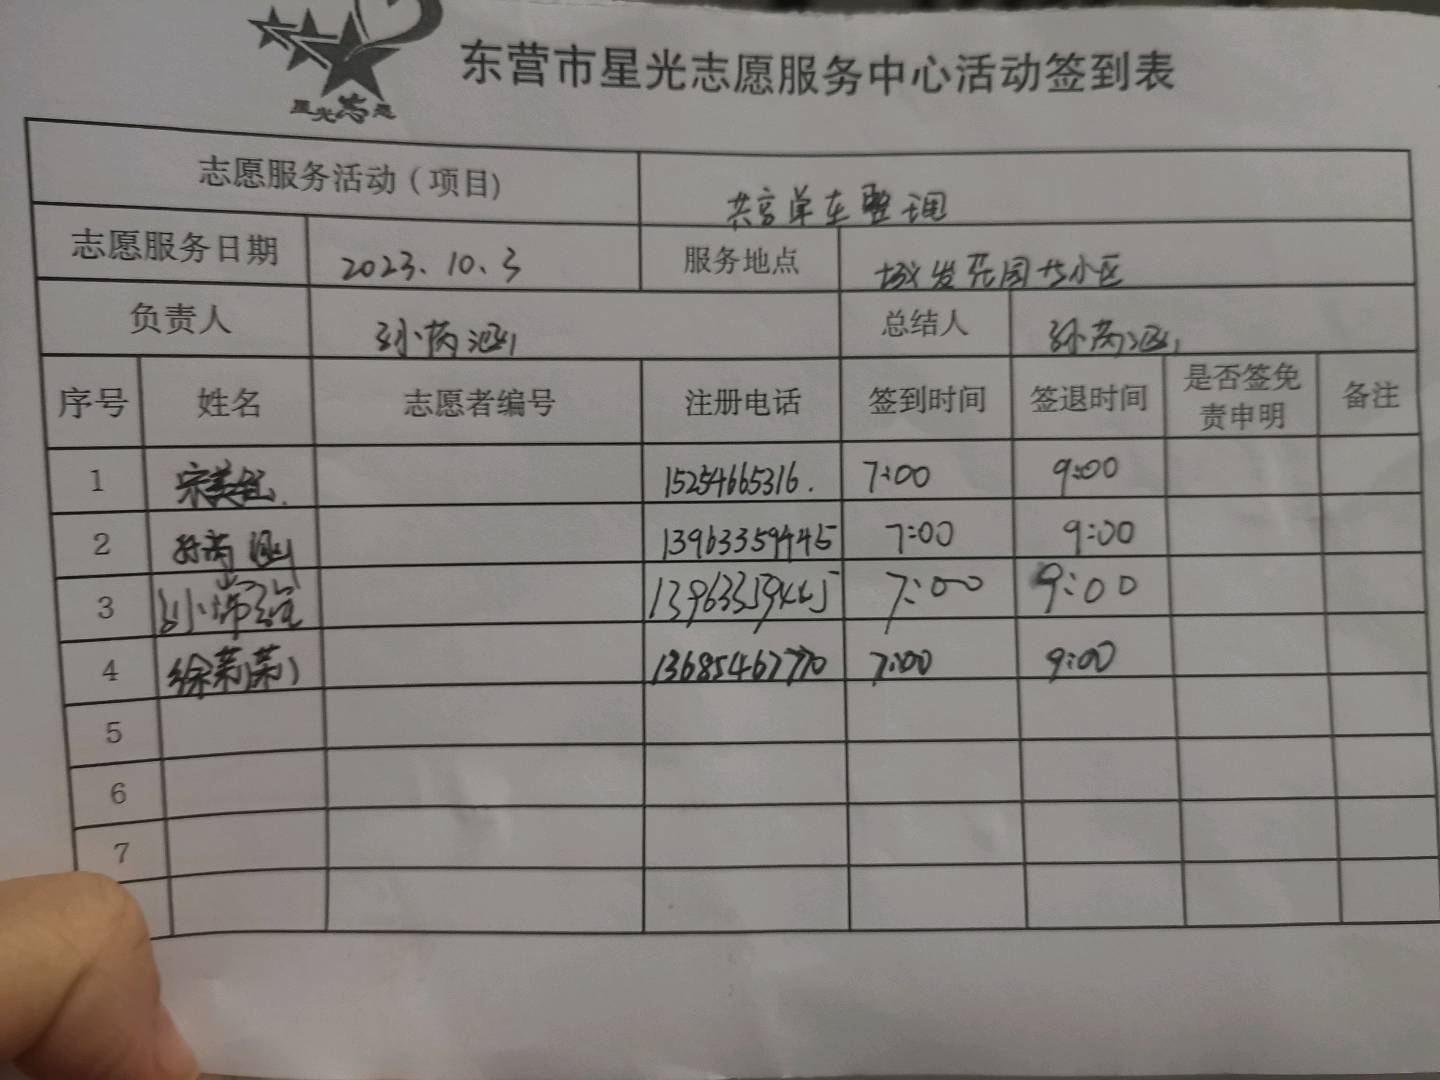 星光志愿
东营市星光志愿服务中心活动签到表
志愿服务活动（项目） 共享单车整理
志愿服务日期 2023.10.3 服务地点 城发花园七小区
负责人 孙芮涵 总结人 孙芮涵
序号 姓名 志愿者编号 注册电话 签到时间 签退时间 是否签免责申明 备注
1 宋美 15254665316. 7:00 9:00
2 孙芮涵 13963359445 7:00 9:00
3 13963359445 7:00 9:00
4 徐荣荣 13685467770 7:00 9:00
5
6
7